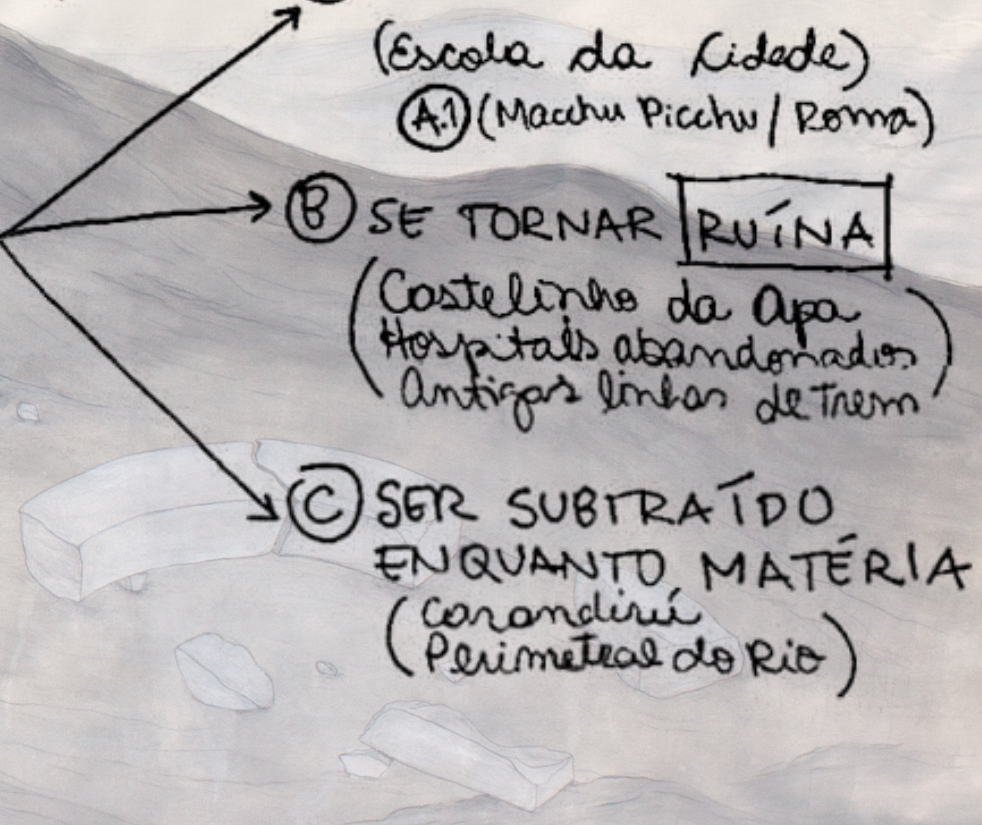 (Escola da Cidade)
A.1 (Macchu Picchu / Roma)
B SE TORNAR RUÍNA
(Castelinho da Apa
Hospitais abandonados
Antigas linhas de trem)
C SER SUBTRAÍDO
ENQUANTO MATÉRIA
(Carandirú
Perimetral do Rio)